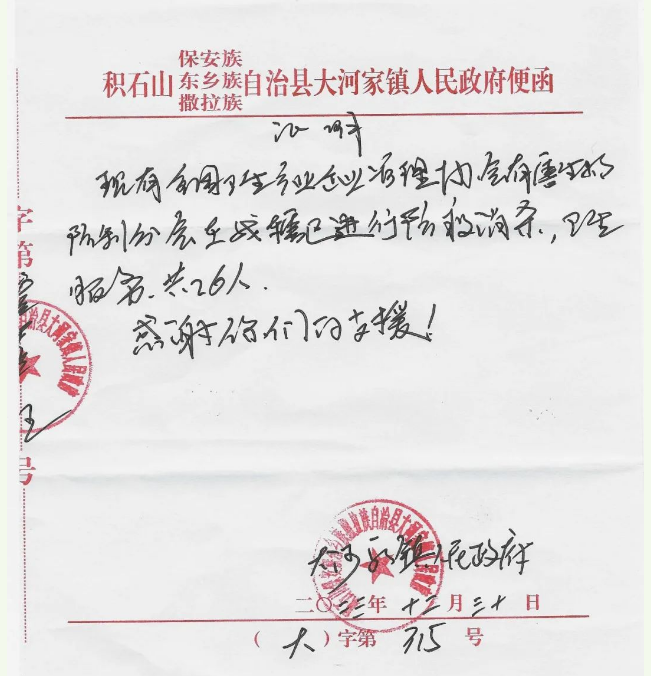 保安族
积石山东乡族自治县大河家镇人民政府便函
撒拉族
证明
现有全国卫生产业企业管理协会有害生物
防制分会在我辖区进行防疫消杀,卫生
服务.共26人.
感谢你们的支援!
字第
号
大河家镇人民政府
二〇二三年十二月三十日
(大)字第315号